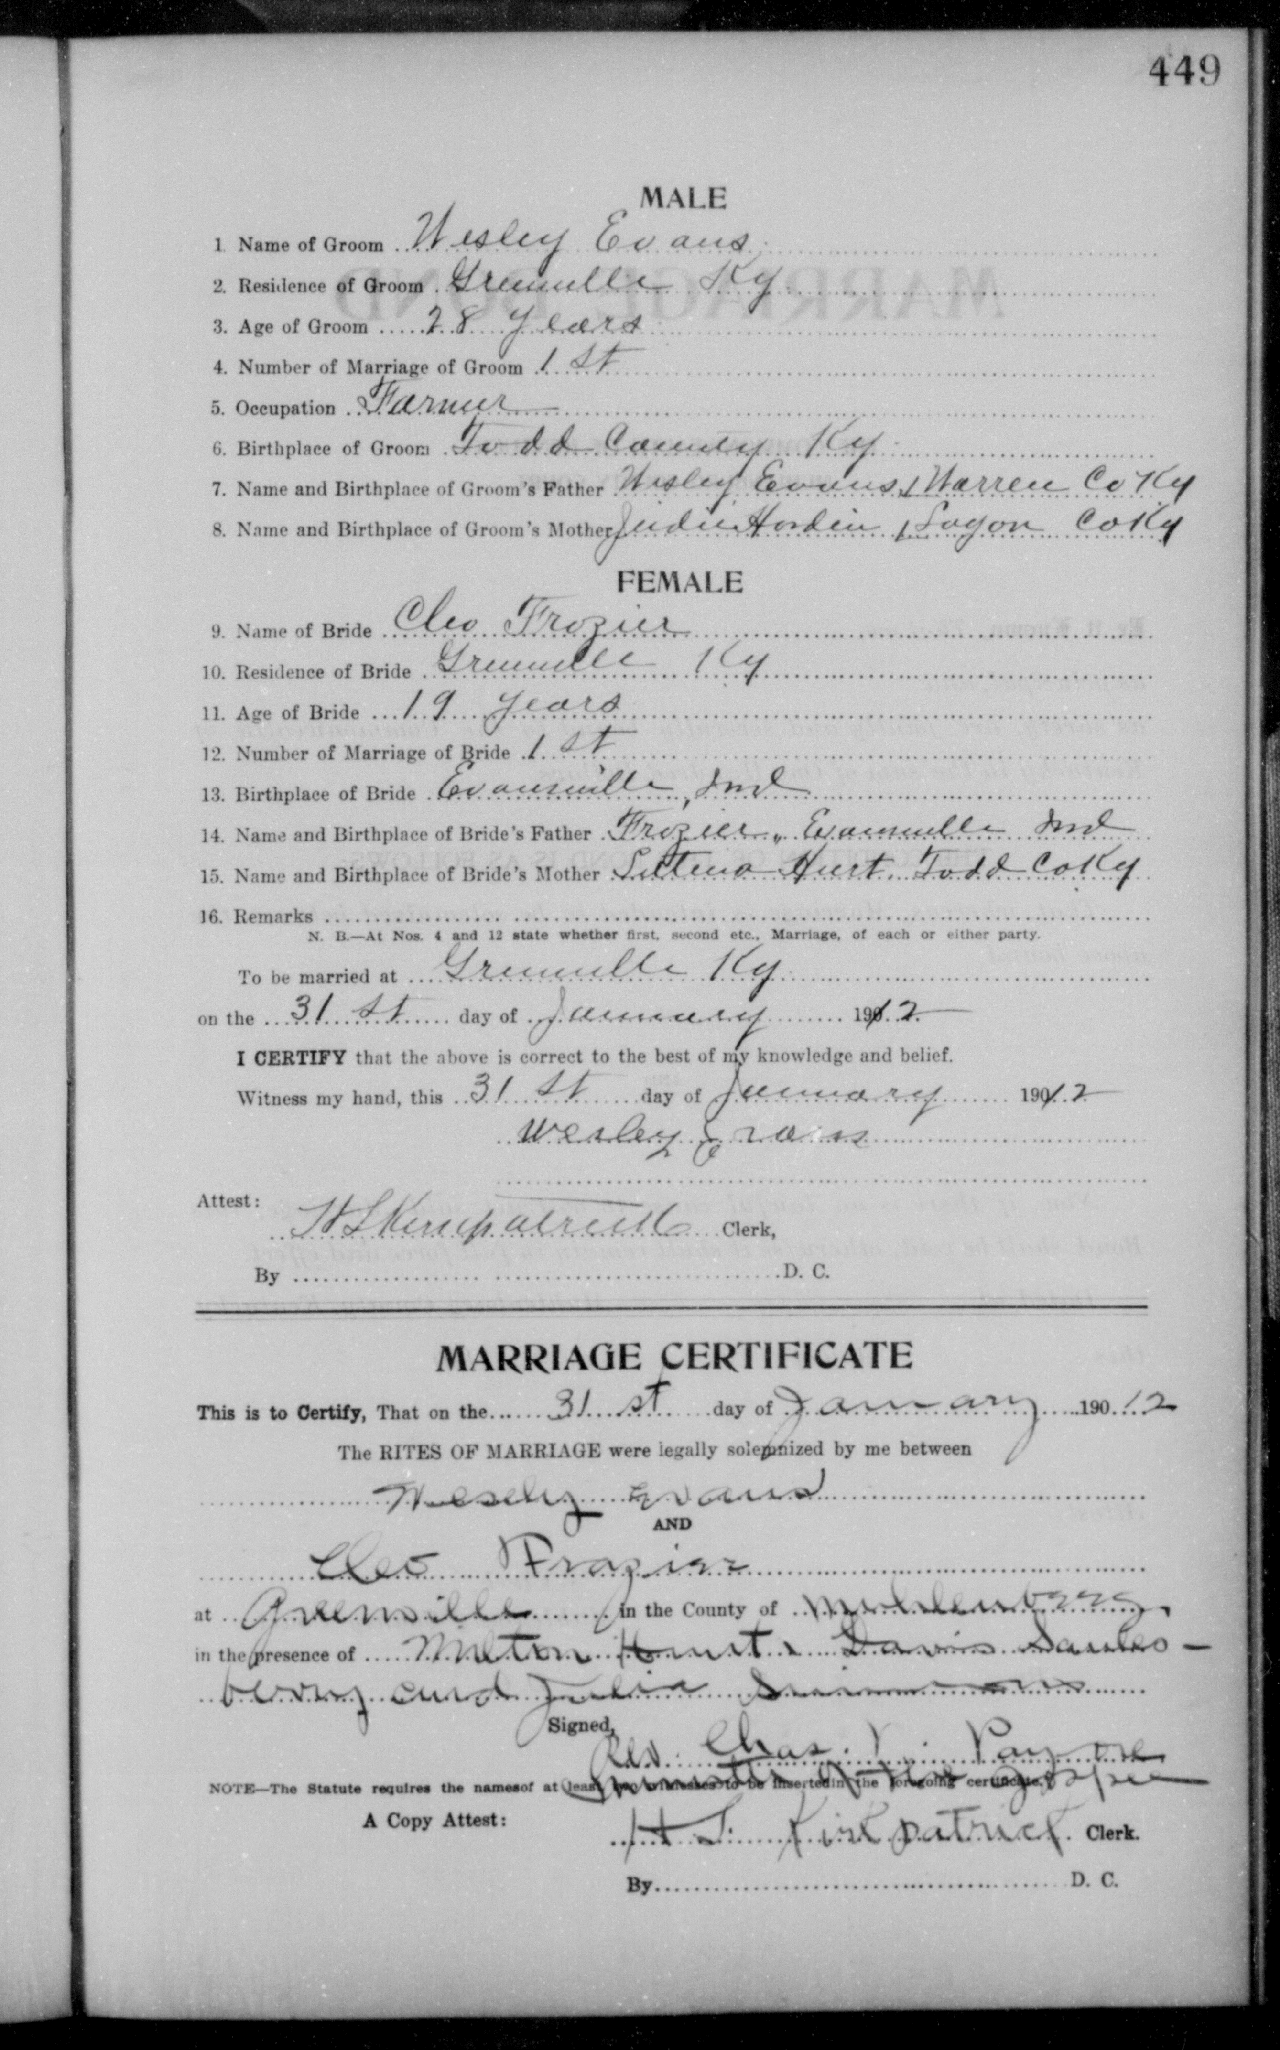 449
MALE
1. Name of Groom Wesley Evans
2. Residence of Groom Greenville Ky
3. Age of Groom 28 years
4. Number of Marriage of Groom 1 st
5. Occupation Farmer
6. Birthplace of Groom Todd County Ky.
7. Name and Birthplace of Groom's Father Wesley Evans, Warren Co Ky
8. Name and Birthplace of Groom's Mother Judie Hardin, Logan Co Ky
FEMALE
9. Name of Bride Cleo Frazier
10. Residence of Bride Greenville Ky
11. Age of Bride 19 years
12. Number of Marriage of Bride 1 st
13. Birthplace of Bride Evansville, Ind
14. Name and Birthplace of Bride's Father Frazier, Evansville Ind
15. Name and Birthplace of Bride's Mother Hurt. Todd Co Ky
16. Remarks
N. B.—At Nos. 4 and 12 state whether first, second etc., Marriage, of each or either party.
To be married at Greenville Ky.
on the 31 st day of January 1912
I CERTIFY that the above is correct to the best of my knowledge and belief.
Witness my hand, this 31 st day of January 19012
Wesley Evans
Attest:
H L Kirkpatrick Clerk,
By D. C.
MARRIAGE CERTIFICATE
This is to Certify, That on the 31 st day of January 190 12
The RITES OF MARRIAGE were legally solemnized by me between
Wesely Evans
AND
Cleo Frazier
at Greenville in the County of Muhlenberg,
in the presence of Milton Hunt, Davis
berry and Julia Simmons
Signed,
Rev. Chas. Payne
Minister of the Gospel
NOTE—The Statute requires the names of at least two witnesses to be inserted in the foregoing certificate.
A Copy Attest:
H L Kirkpatrick Clerk.
By D. C.